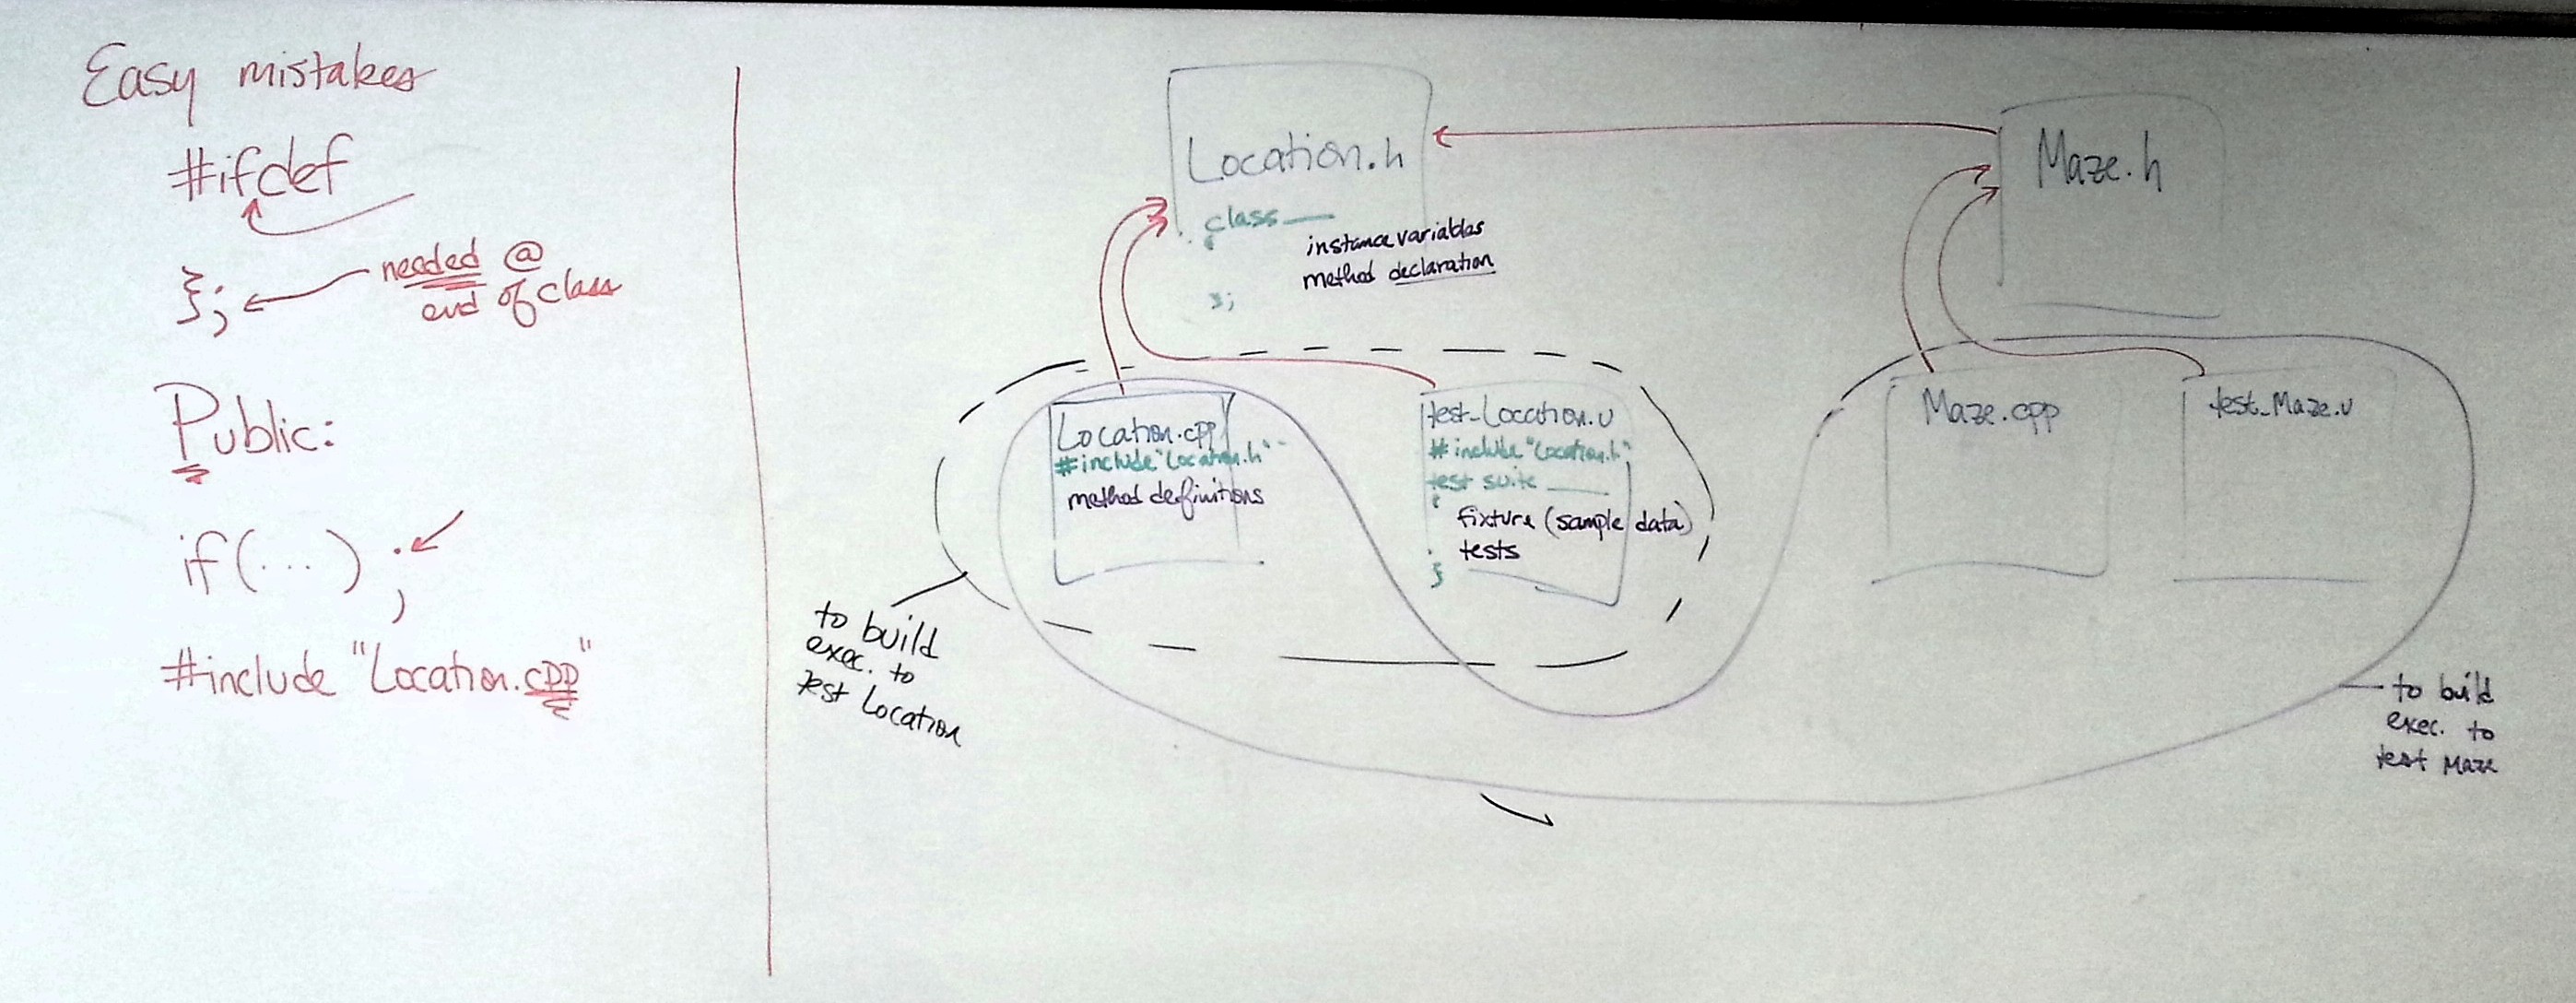 Easy mistakes
#ifdef
}; needed @
end of class
Public:
if (...) ;
#include "Location.cpp"
Location.h
class ___
{
instance variables
method declaration
};
Maze.h
Location.cpp
#include "Location.h"
method definitions
test_Location.u
#include "Location.h"
test suite ___
{
fixture (sample data)
tests
}
Maze.cpp
test_Maze.u
to build
exec. to
test Location
to build
exec. to
test Maze